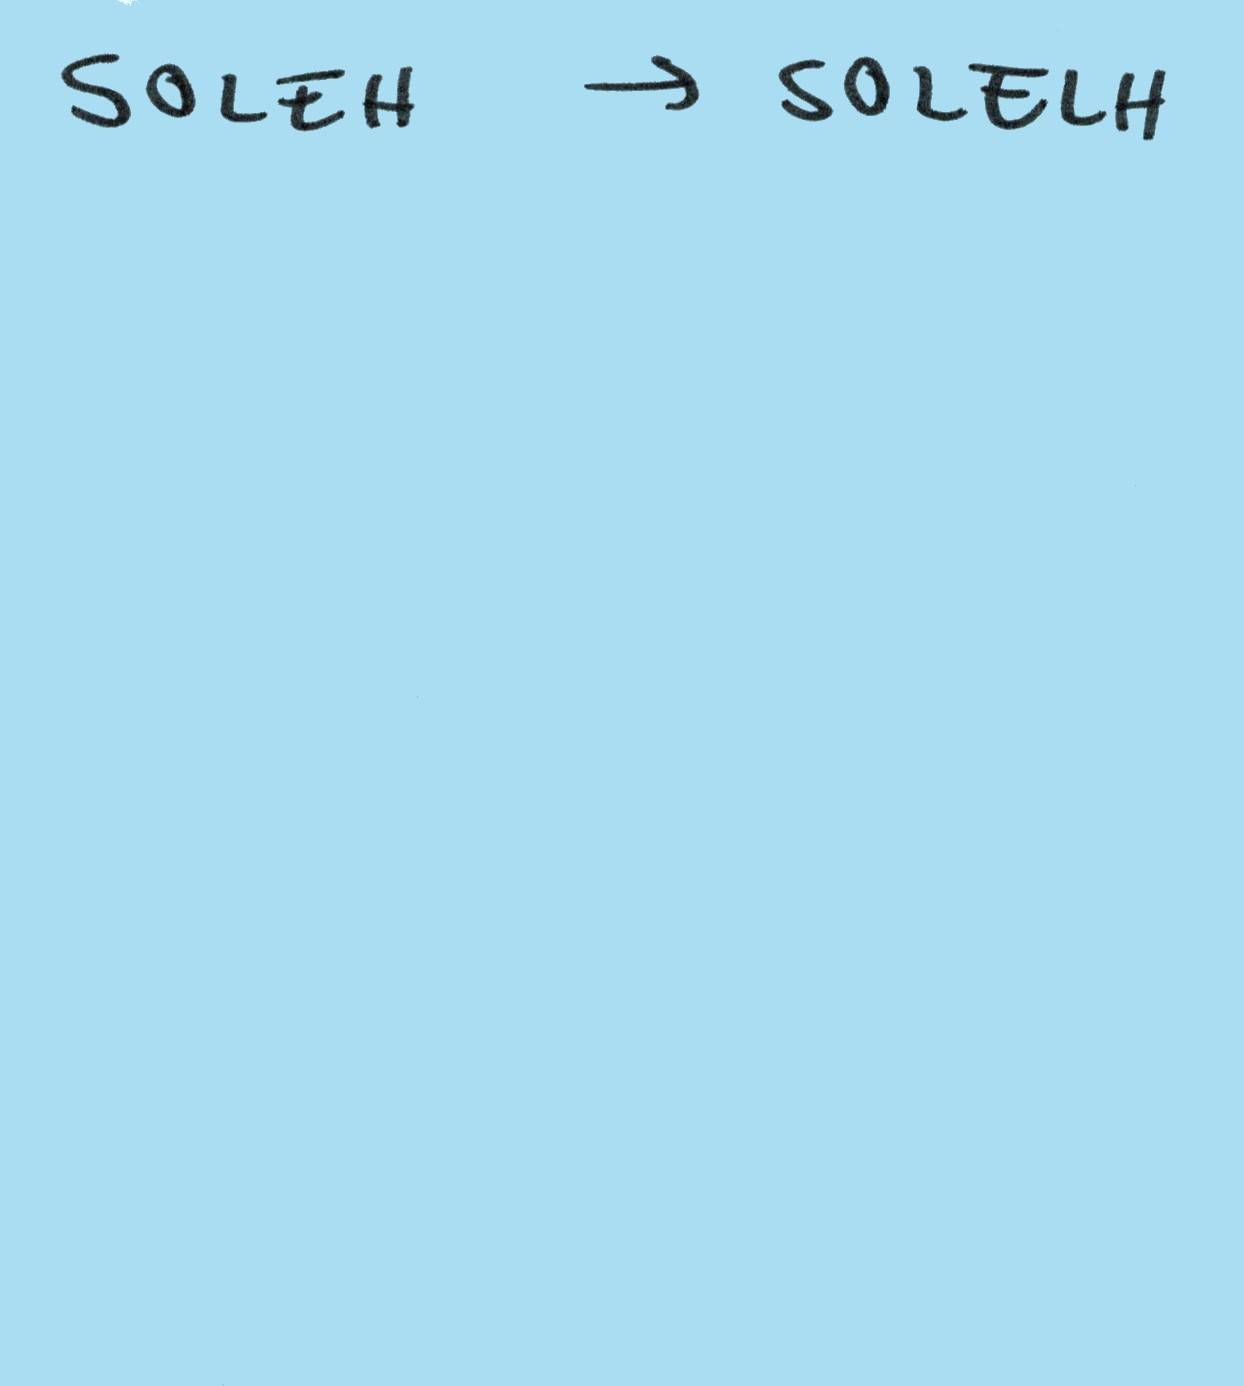 SOLEH → SOLELH